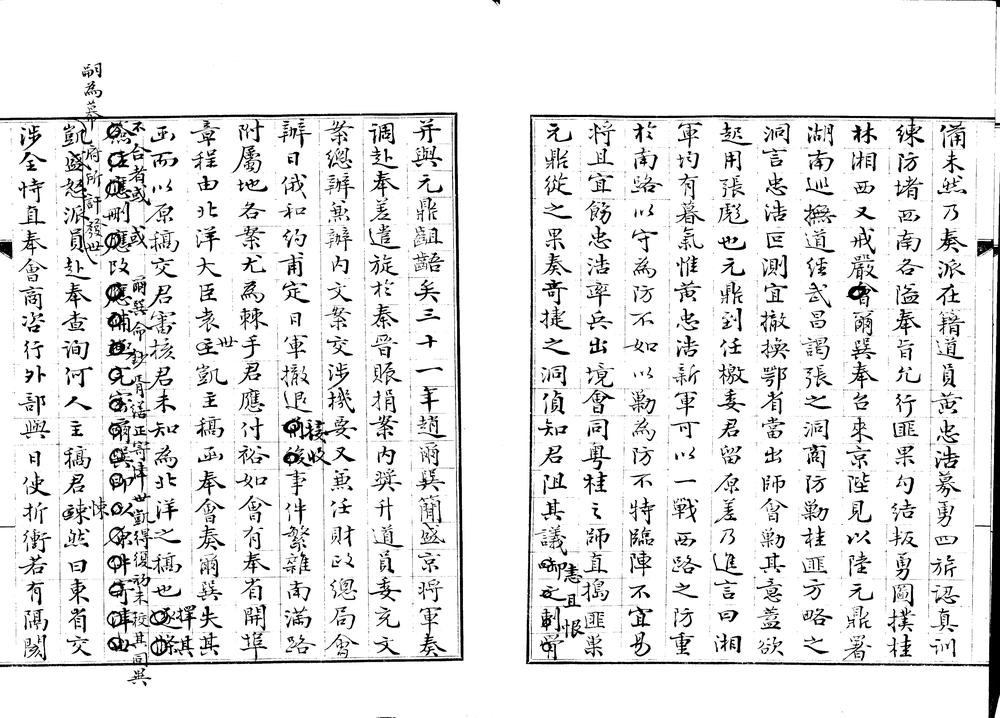 備未然乃奏派在籍道員黃忠浩募勇四旂認真訓
練防堵西南各隘奉旨允行匪果勾結叛勇圖撲桂
林湘西又戒嚴會爾巽奉召來京陛見以陸元鼎署
湖南巡撫道經武昌謁張之洞商防勦桂匪方略之
洞言忠浩叵測宜撤換鄂省當出師會勦其意蓋欲
起用張彪也元鼎到任檄委君留原差乃進言曰湘
軍均有暮氣惟黃忠浩新軍可以一戰西路之防重
於南路以守為防不如以勦為防不特臨陣不宜易
將且宜飭忠浩率兵出境會同粵桂之師直搗匪巢
元鼎從之果奏奇捷之洞偵知君阻其議
恚且恨
并與元鼎齟齬矣三十一年趙爾巽簡盛京將軍奏
調赴奉差遣旋於秦晉賑捐案內獎升道員委充文
案總辦兼辦內文案交涉機要又兼任財政總局會
辦日俄和約甫定日軍撤退接收事件繁雜南滿路
附屬地各案尤為棘手君應付裕如會有奉省開埠
章程由北洋大臣袁世凱主稿函奉會奏爾巽失其
函而以原稿交君審核君未知為北洋之稿也擇其
不合者或刪應改
爾巽命鈔胥繕正寄津世凱得復初未校其同異
嗣為幕府所訐發世
凱盛怒派員赴奉查詢何人主稿君悚然曰東省交
涉全恃直奉會商咨行外部與日使折衝若有隔閡